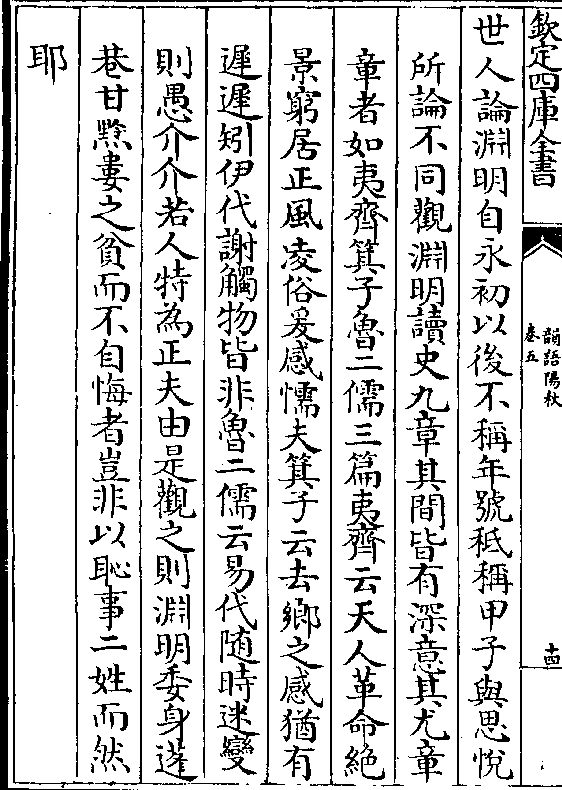 欽定四庫全書
韻語陽秋
卷五
十四
世人論淵明自永初以後不稱年號秪稱甲子與思悅
所論不同觀淵明讀史九章其間皆有深意其尤章
章者如夷齊箕子魯二儒三篇夷齊云天人革命絶
景窮居正風凌俗爰感懦夫箕子云去鄉之感猶有
遲遲矧伊代謝觸物皆非魯二儒云易代随時迷變
則愚介介若人特為正夫由是觀之則淵明委身蓬
巷甘黔婁之貧而不自悔者豈非以恥事二姓而然
耶